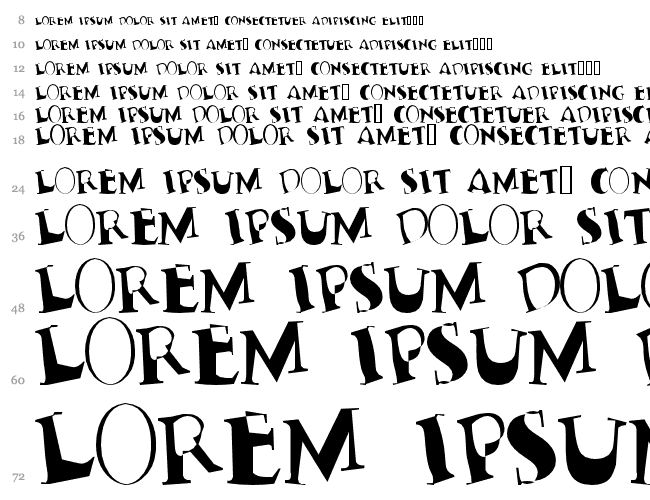 8 LOREM IPSUM DOLOR SIT AMET□ CONSECTETUER ADIPISCING ELIT□□□
10 LOREM IPSUM DOLOR SIT AMET□ CONSECTETUER ADIPISCING ELIT□□□
12 LOREM IPSUM DOLOR SIT AMET□ CONSECTETUER ADIPISCING ELIT□□□
14 LOREM IPSUM DOLOR SIT AMET□ CONSECTETUER ADIPISCING EL
16 LOREM IPSUM DOLOR SIT AMET□ CONSECTETUER ADIPISC
18 LOREM IPSUM DOLOR SIT AMET□ CONSECTETUER A
24 LOREM IPSUM DOLOR SIT AMET□ CON
36 LOREM IPSUM DOLOR SIT
48 LOREM IPSUM DOLO
60 LOREM IPSUM
72 LOREM IPSUM